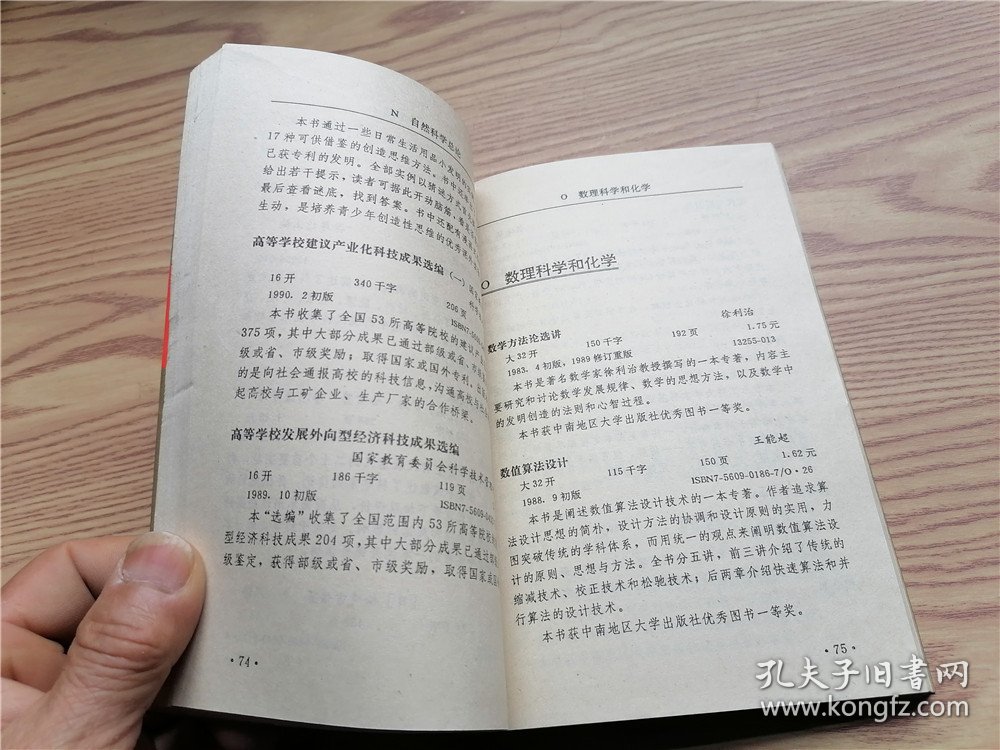 N 自然科学总论
本书通过一些日常生活用品小发明
17种可供借鉴的创造思维方法。书中
已获专利的发明。全部实例以猜谜方式
给出若干提示，读者可据此开动脑筋，
最后查看谜底，找到答案。书中还配有
生动，是培养青少年创造性思维的优秀
高等学校建议产业化科技成果选编（一）
16开 340千字 206页
1990．2初版 ISBN7-5609-
本书收集了全国53所高等院校的建议产
375项，其中大部分成果已通过部级或省、市
级或省、市级奖励；取得国家或国外专利。
的是向社会通报高校的科技信息，沟通高校与
起高校与工矿企业、生产厂家的合作桥梁。
高等学校发展外向型经济科技成果选编
国家教育委员会科学技术
16开 186千字 119页
1989．10初版 ISBN7-5609-
本“选编”收集了全国范围内53所高等院校
型经济科技成果204项，其中大部分成果已通过部
级鉴定，获得部级或省、市级奖励，取得国家或
·74·
O 数理科学和化学
O 数理科学和化学
数学方法论选讲 徐利治
大32开 150千字 192页 1.75元
1983．4初版，1989修订重版 13255-013
本书是著名数学家徐利治教授撰写的一本专著，内容主
要研究和讨论数学发展规律、数学的思想方法，以及数学中
的发明创造的法则和心智过程。
本书获中南地区大学出版社优秀图书一等奖。
数值算法设计 王能超
大32开 115千字 150页 1.62元
1988．9初版 ISBN7-5609-0186-7/O·26
本书是阐述数值算法设计技术的一本专著。作者追求算
法设计思想的简朴，设计方法的协调和设计原则的实用，力
图突破传统的学科体系，而用统一的观点来阐明数值算法设
计的原则、思想与方法。全书分五讲，前三讲介绍了传统的
缩减技术、校正技术和松驰技术；后两章介绍快速算法和并
行算法的设计技术。
本书获中南地区大学出版社优秀图书一等奖。
·75·
孔夫子旧书网
www.kongfz.com